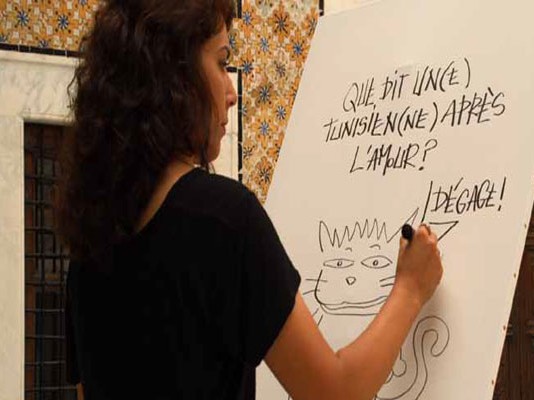 QUE DIT UN(E)
TUNISIEN(NE) APRÈS
L'AMOUR?
DÉGAGE!